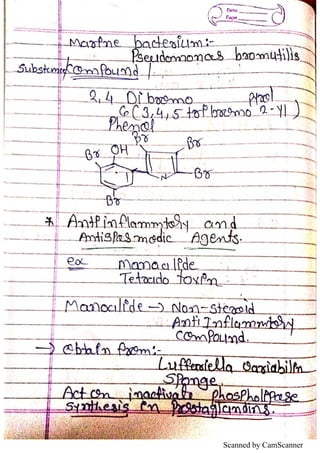 Date
Page
Marine bacterium:-
Pseudomonas bromutilis
Substance/Compound |
2,4 Dibromo
6(3,4,5 tri bromo Pyrol 2-yl)
Phenol
Br
Br
OH
Br
Br
N
Br
* Antiinflammtory and
Antispasmodic Agents.
ex Manoalide
Tetrado toxin
Manoalide → Non-steroid
Anti Inflammtory
Compound.
→ obtain from:-
Luffariella Variabilin
Sponge.
Act on inactivate phospholipase
synthesis in Prostaglandins.
Scanned by CamScanner